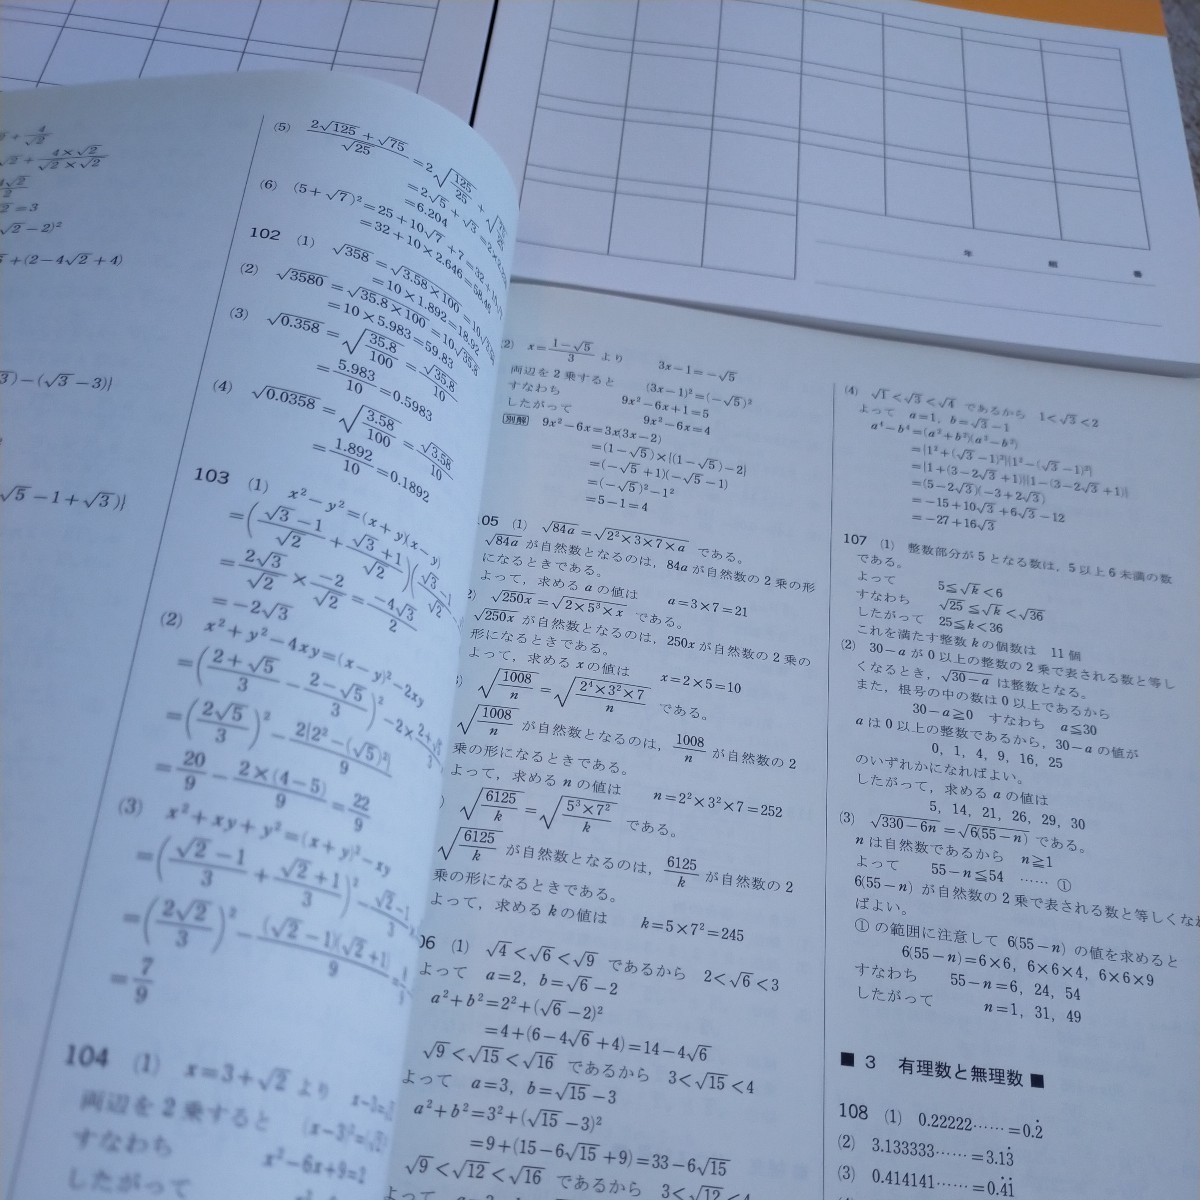 (5) (2√125+√75)/√25=2√(125/25)+
=2√5+√3=2×2.
=6.204
(6) (5+√7)²=25+10√7+7=32+
=32+10×2.646=58.46
102 (1) √358=√3.58×100=10√
=10×1.892=18.92
(2) √3580=√35.8×100=10√35.8
=10×5.983=59.83
(3) √0.358=√(35.8/100)=√35.8/10
=5.983/10=0.5983
(4) √0.0358=√(3.58/100)=√3.58/10
=1.892/10=0.1892
103 (1) x²−y²=(x+y)(x−y)
=((√3−1)/√2+(√3+1)/√2)(
=2√3/√2×−2/√2=−4√3/2
=−2√3
(2) x²+y²−4xy=(x−y)²−2xy
=((2+√5)/3−(2−√5)/3)²−2×
=(2√5/3)²−2{2²−(√5)²}/9
=20/9−2×(4−5)/9=22/9
(3) x²+xy+y²=(x+y)²−xy
=((√2−1)/3+(√2+1)/3)²−
=(2√2/3)²−(√2−1)(√2+1)/9
=7/9
104 (1) x=3+√2 より
両辺を2乗すると
すなわち x²−6x+9=
したがって
2) x=(1−√5)/3 より 3x−1=−√5
両辺を2乗すると (3x−1)²=(−√5)²
すなわち 9x²−6x+1=5
したがって 9x²−6x=4
別解 9x²−6x=3x(3x−2)
=(1−√5)×{(1−√5)−2}
=(−√5+1)(−√5−1)
=(−√5)²−1²
=5−1=4
05 (1) √84a=√2²×3×7×a である。
√84a が自然数となるのは，84a が自然数の2乗の形
になるときである。
よって，求める a の値は a=3×7=21
2) √250x=√2×5³×x である。
√250x が自然数となるのは，250x が自然数の2乗の
形になるときである。
よって，求める x の値は x=2×5=10
√(1008/n)=√(2⁴×3²×7/n) である。
√(1008/n) が自然数となるのは，1008/n が自然数の2
乗の形になるときである。
よって，求める n の値は n=2²×3²×7=252
√(6125/k)=√(5³×7²/k) である。
√(6125/k) が自然数となるのは，6125/k が自然数の2
乗の形になるときである。
よって，求める k の値は k=5×7²=245
06 (1) √4<√6<√9 であるから 2<√6<3
よって a=2，b=√6−2
a²+b²=2²+(√6−2)²
=4+(6−4√6+4)=14−4√6
√9<√15<√16 であるから 3<√15<4
よって a=3，b=√15−3
a²+b²=3²+(√15−3)²
=9+(15−6√15+9)=33−6√15
√9<√12<√16 であるから 3<√12<4
(4) √1<√3<√4 であるから 1<√3<2
よって a=1，b=√3−1
a⁴−b⁴=(a²+b²)(a²−b²)
={1²+(√3−1)²}{1²−(√3−1)²}
={1+(3−2√3+1)}{1−(3−2√3+1)}
=(5−2√3)(−3+2√3)
=−15+10√3+6√3−12
=−27+16√3
107 (1) 整数部分が5となる数は，5以上6未満の数
である。
よって 5≦√k<6
すなわち √25≦√k<√36
したがって 25≦k<36
これを満たす整数 k の個数は 11個
(2) 30−a が0以上の整数の2乗で表される数と等し
くなるとき，√30−a は整数となる。
また，根号の中の数は0以上であるから
30−a≧0 すなわち a≦30
a は0以上の整数であるから，30−a の値が
0，1，4，9，16，25
のいずれかになればよい。
したがって，求める a の値は
5，14，21，26，29，30
(3) √330−6n=√6(55−n) である。
n は自然数であるから n≧1
よって 55−n≦54 …… ①
6(55−n) が自然数の2乗で表される数と等しくなれ
ばよい。
① の範囲に注意して 6(55−n) の値を求めると
6(55−n)=6×6，6×6×4，6×6×9
すなわち 55−n=6，24，54
したがって n=1，31，49
■ 3 有理数と無理数 ■
108 (1) 0.22222……=0.2̇
(2) 3.133333……=3.13̇
(3) 0.414141……=0.4̇1̇
年 組 番